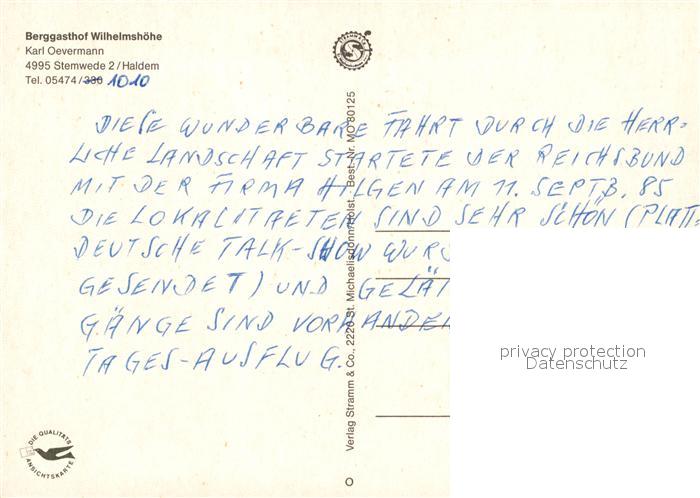 Berggasthof Wilhelmshöhe
Karl Oevermann
4995 Stemwede 2/Haldem
Tel. 05474/330 1010
DIESE WUNDERBARE FAHRT DURCH DIE HERR-
LICHE LANDSCHAFT STARTETE DER REICHSBUND
MIT DER FIRMA HILGEN AM 11. SEPTB. 85
DIE LOKALITAETEN SIND SEHR SCHÖN (PLATT=
DEUTSCHE TALK-SHOW WURD
GESENDET) UND GELÄ
GÄNGE SIND VORHANDEN
TAGES-AUSFLUG.
Verlag Stramm & Co., 2220 St. Michaelisdonn/Holst. Best.-Nr. MO 80125
privacy protection
Datenschutz
DIE QUALITÄTS
ANSICHTSKARTE